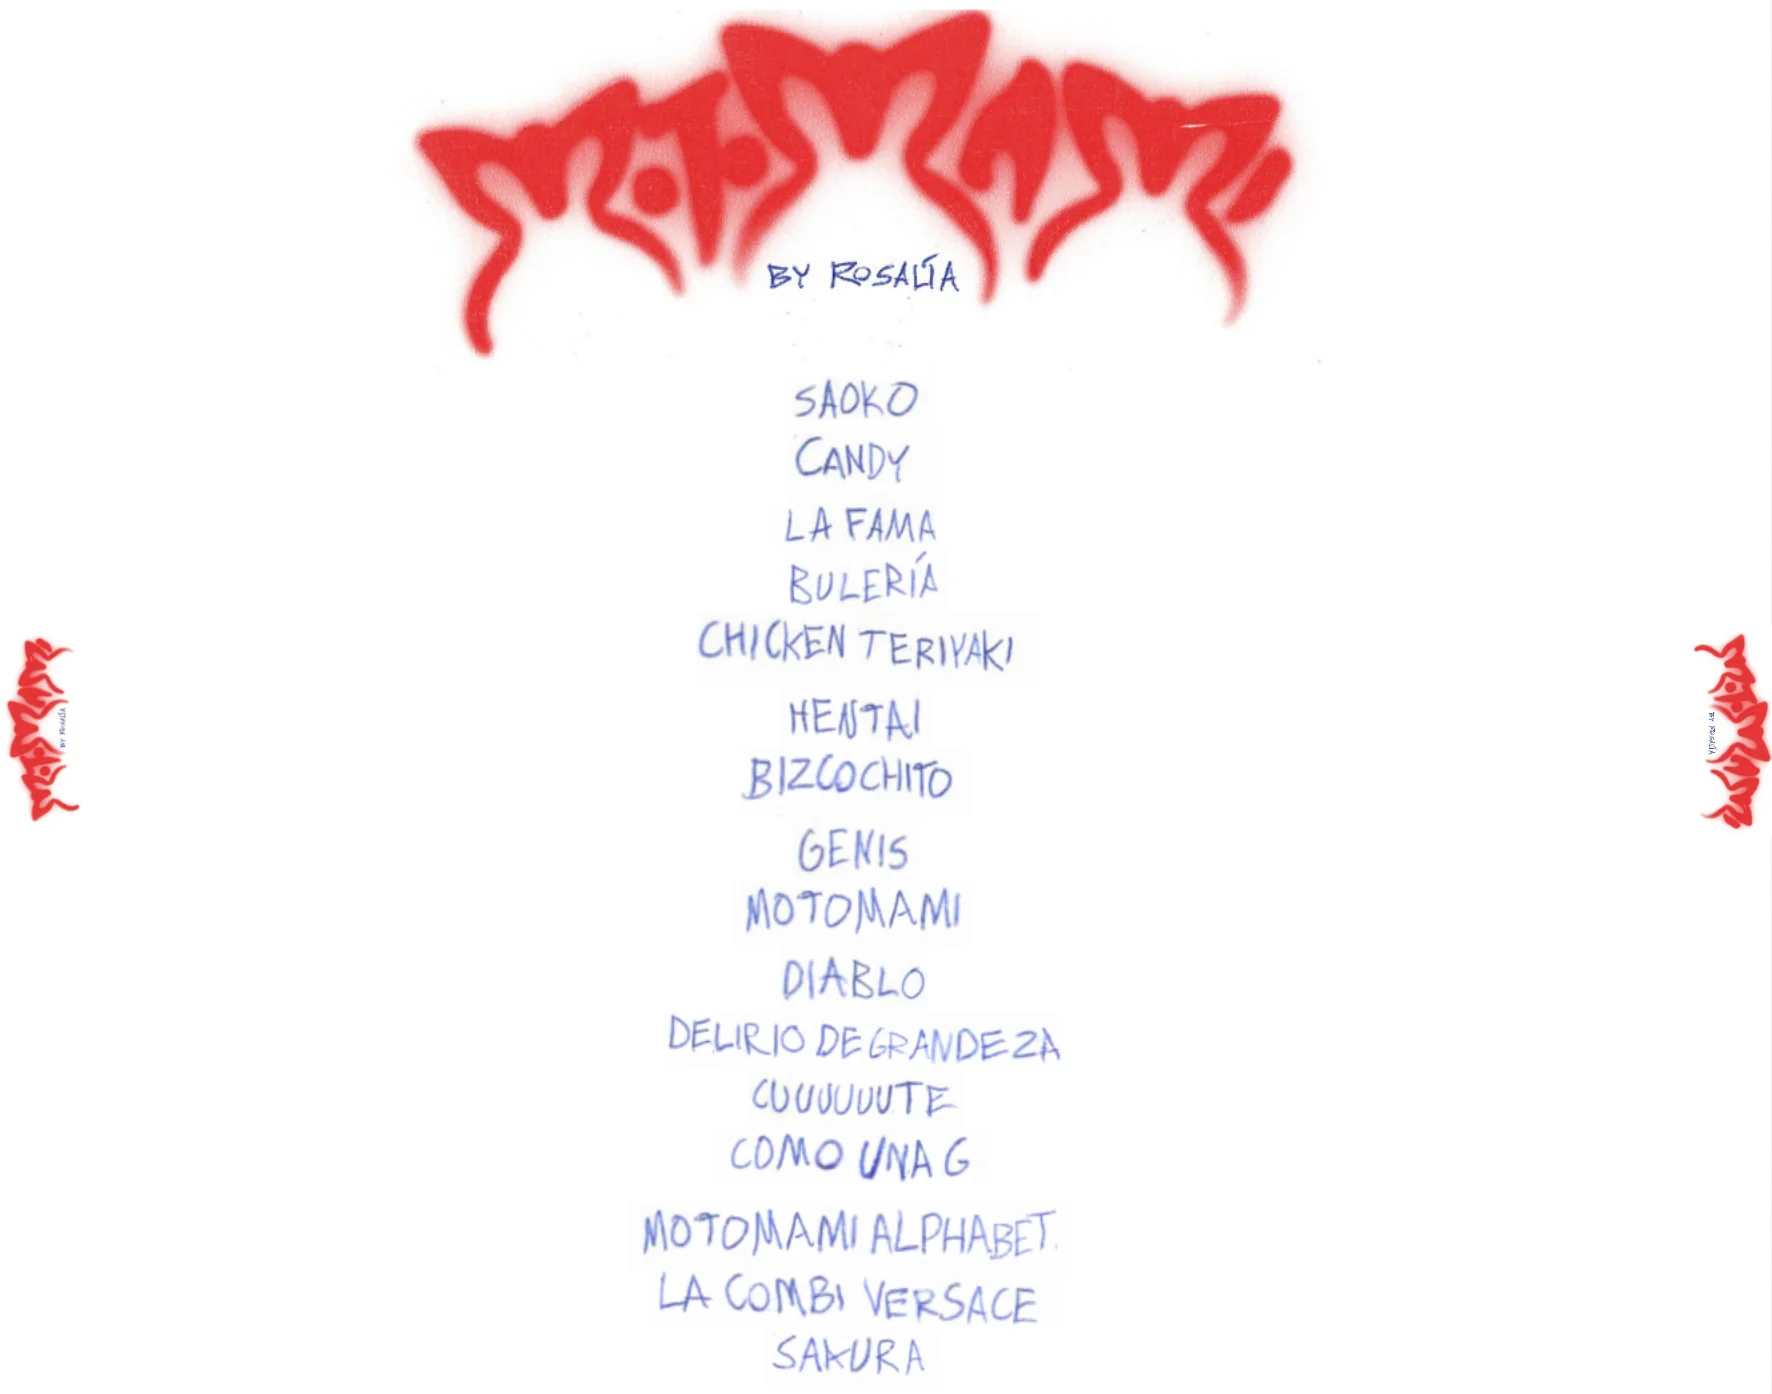 MOTOMAMI
BY ROSALÍA
SAOKO
CANDY
LA FAMA
BULERÍA
CHICKEN TERIYAKI
HENTAI
BIZCOCHITO
GENIS
MOTOMAMI
DIABLO
DELIRIO DE GRANDEZA
CUUUUUUTE
COMO UNA G
MOTOMAMI ALPHABET
LA COMBI VERSACE
SAKURA
MOTOMAMI
BY ROSALÍA
MOTOMAMI
BY ROSALÍA